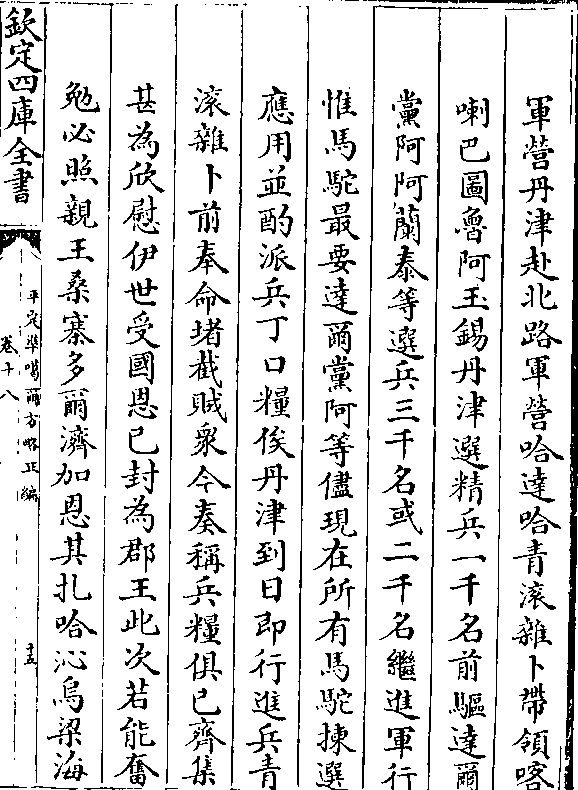 軍營丹津赴北路軍營哈達哈青滚雜卜帶領喀
喇巴圖魯阿玉錫丹津選精兵一千名前驅達爾
黨阿阿蘭泰等選兵三千名或二千名繼進軍行
惟馬駝最要達爾黨阿等儘現在所有馬駝揀選
應用並酌派兵丁口糧俟丹津到日即行進兵青
滚雜卜前奉命堵截賊衆今奏稱兵糧俱已齊集
甚為欣慰伊世受國恩已封為郡王此次若能奮
勉必照親王桑寨多爾濟加恩其扎哈沁烏梁海
欽定四庫全書
平定凖噶爾方略正編
卷十八
十五